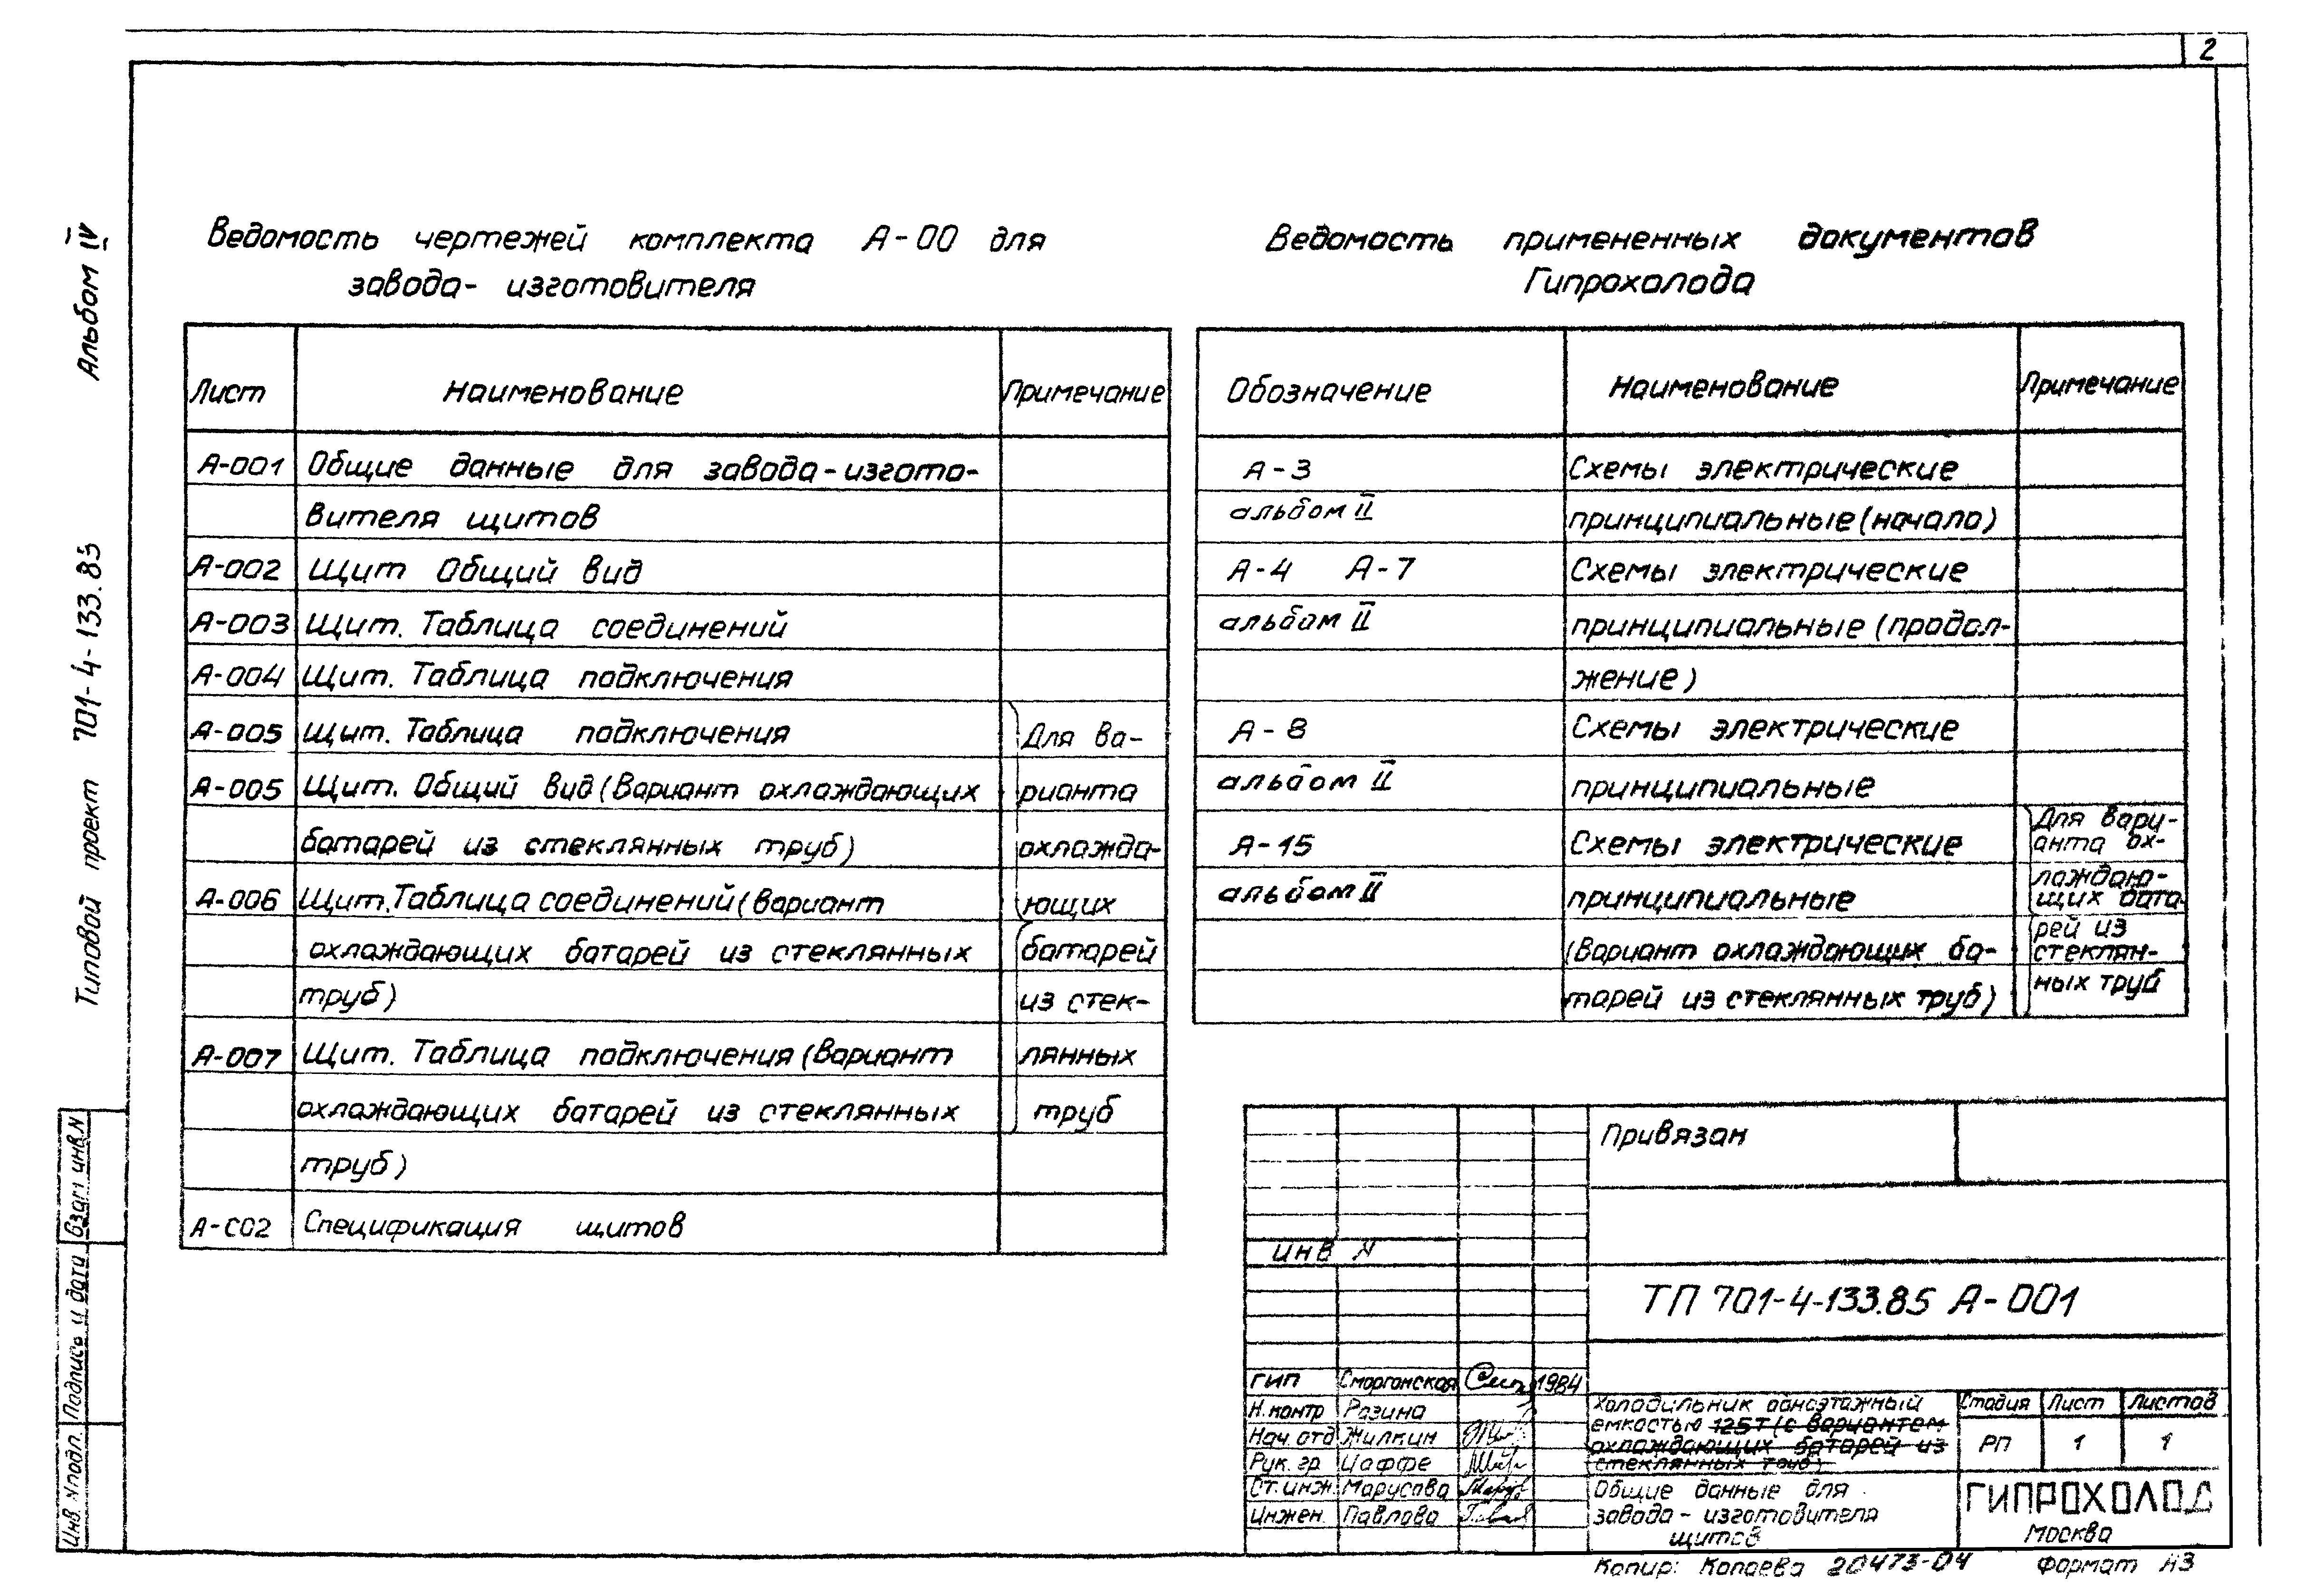 2
Альбом IV
Типовой проект 701-4-133.85
Ведомость чертежей комплекта А-00 для
завода- изготовителя
Лист Наименование Примечание
А-001 Общие данные для завода-изгото-
вителя щитов
А-002 Щит Общий вид
А-003 Щит. Таблица соединений
А-004 Щит. Таблица подключения
А-005 Щит. Таблица подключения Для ва-
А-005 Щит. Общий вид (Вариант охлаждающих рианта
батарей из стеклянных труб) охлажда-
А-006 Щит. Таблица соединений (вариант ющих
охлаждающих батарей из стеклянных батарей
труб) из стек-
А-007 Щит. Таблица подключения (вариант лянных
охлаждающих батарей из стеклянных труб
труб)
А-С02 Спецификация щитов
Ведомость примененных документов
Гипрохолода
Обозначение Наименование Примечание
А-3 Схемы электрические
альбом II принципиальные (начало)
А-4 А-7 Схемы электрические
альбом II принципиальные (продол-
жение)
А-8 Схемы электрические
альбом II принципиальные
А-15 Схемы электрические
альбом II принципиальные
(Вариант охлаждающих ба-
тарей из стеклянных труб)
Для вари-
анта ох-
лаждаю-
щих бата-
рей из
стеклян-
ных труб
Привязан
ИНВ N
ТП 701-4-133.85 А-001
ГИП Сморгонская 1984
Н. контр Разина
Нач. отд Жилкин
Рук. гр Иоффе
Ст. инж. Марусова
Инжен. Павлова
Холодильник одноэтажный
емкостью 125Т (с вариантом
охлаждающих батарей из
стеклянных труб)
Стадия Лист Листов
РП 1 1
Общие данные для
завода - изготовителя
щитов
ГИПРОХОЛОД
Москва
Копир: Копаева 20473-04 Формат А3
Инв. N подл. Подпись и дата Взам инв. N